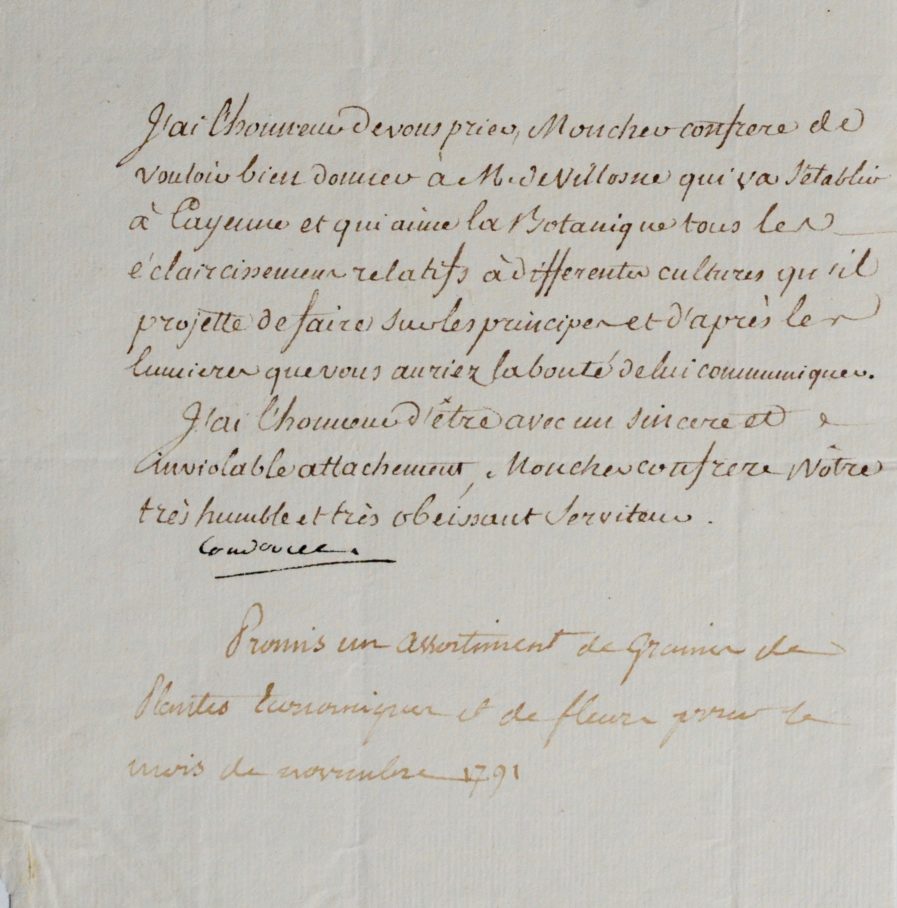 J'ai l'honneur de vous prier, Mon cher confrere de
vouloir bien donner à M. de Villosne qui va s'etablir
à Cayenne et qui aime la Botanique tous les
éclaircissemens relatifs à differentes cultures qu'il
projette de faire sur les principes et d'après les
lumieres que vous auriez la bonté de lui communiquer.
J'ai l'honneur d'être avec un sincere et
inviolable attachement, Mon cher confrere Vôtre
très humble et très obéissant Serviteur.
Condorcet.
Promis un assortiment de Graines de
Plantes Economiques et de fleurs pour le
mois de novembre 1791